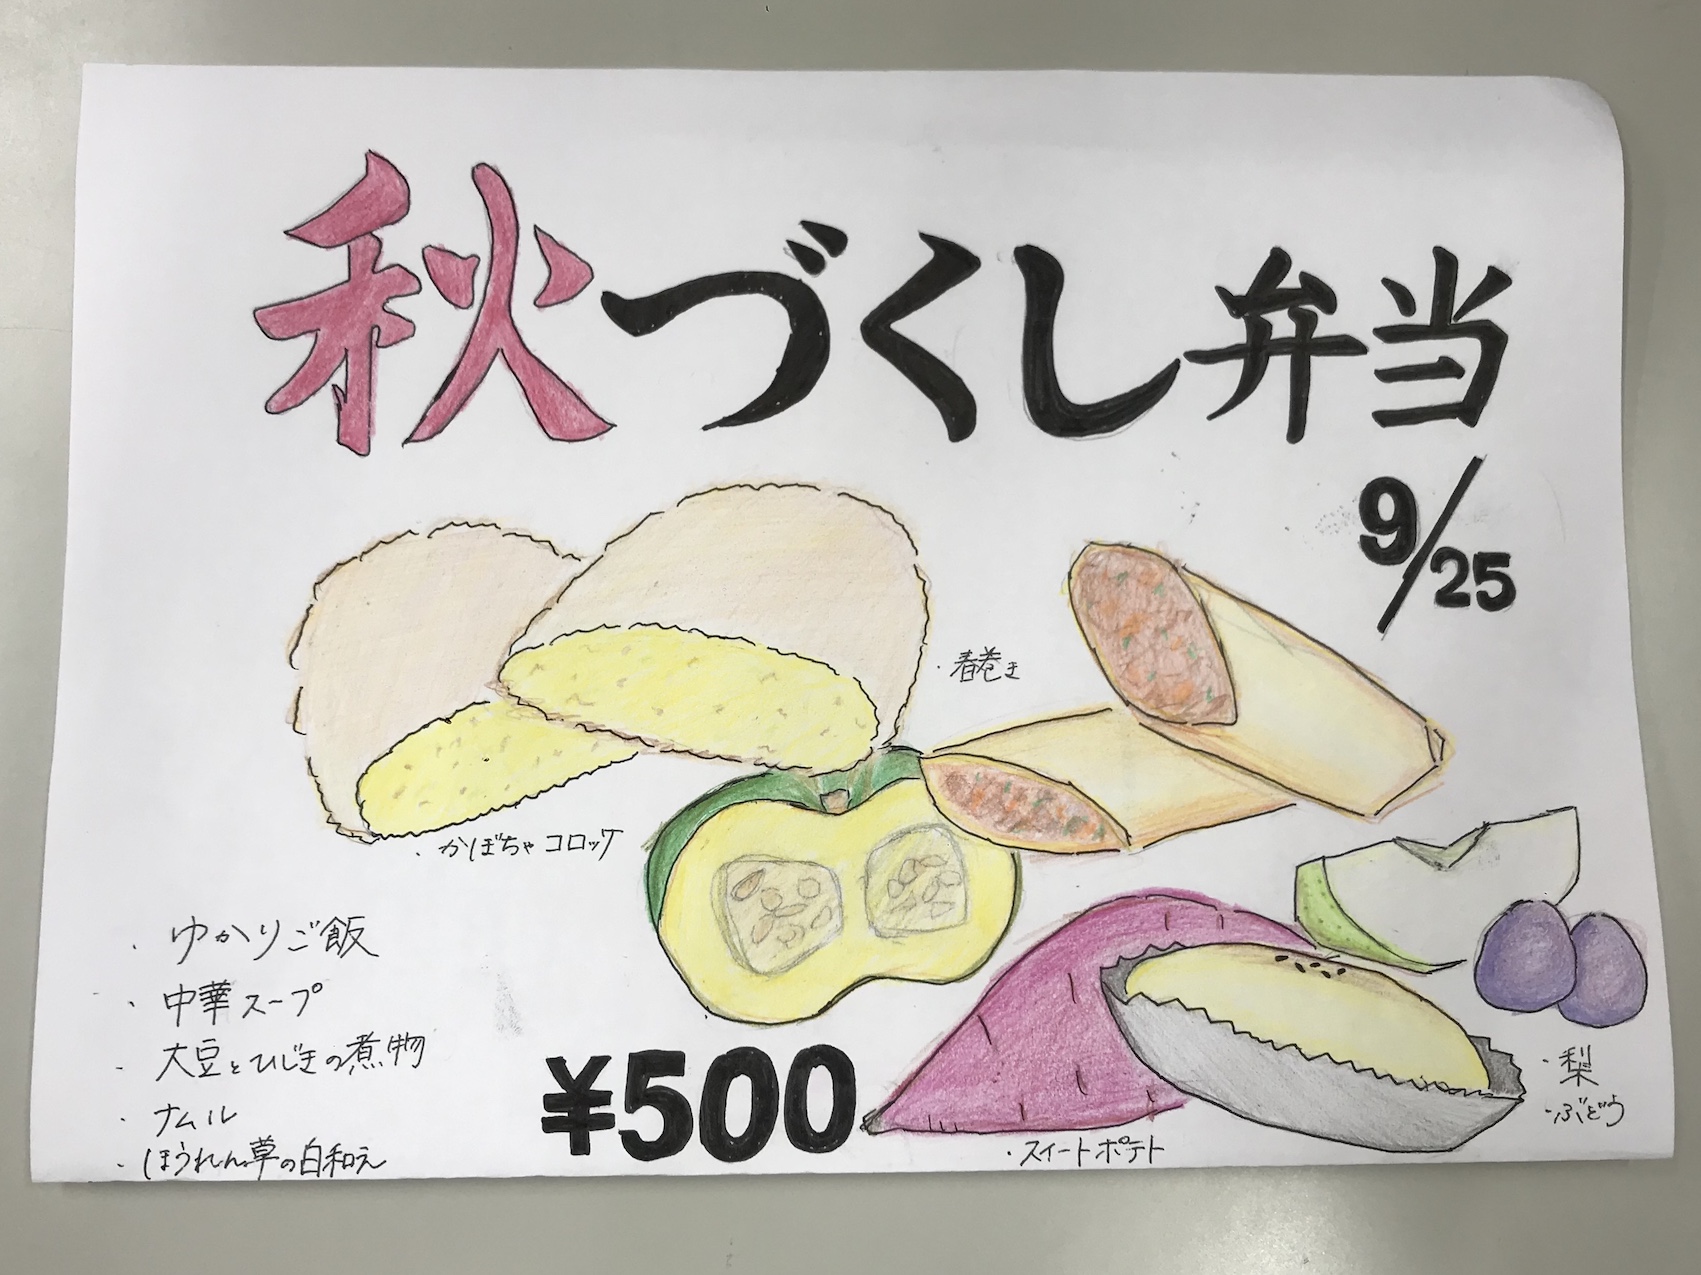 秋づくし弁当
9/25
・春巻き
・かぼちゃコロッケ
・ゆかりご飯
・中華スープ
・大豆とひじきの煮物
・ナムル
・ほうれん草の白和え
¥500
・スイートポテト
・梨
・ぶどう